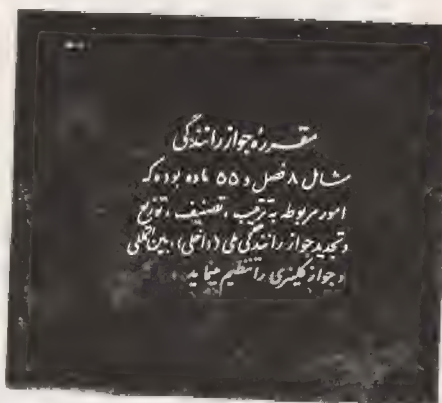 مقرره جواز رانندگی
شامل ۸ فصل و ۵۵ ماده بوده که
امور مربوطه به ترتیب ، تصنیف ، توزیع
و تجدید جواز رانندگی ملی (داخلی) ، بین المللی
و جواز کلینری را تنظیم مینماید